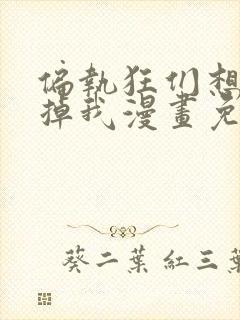 偏執狂们想
掉我漫畫免
葵二葉 紅三葉